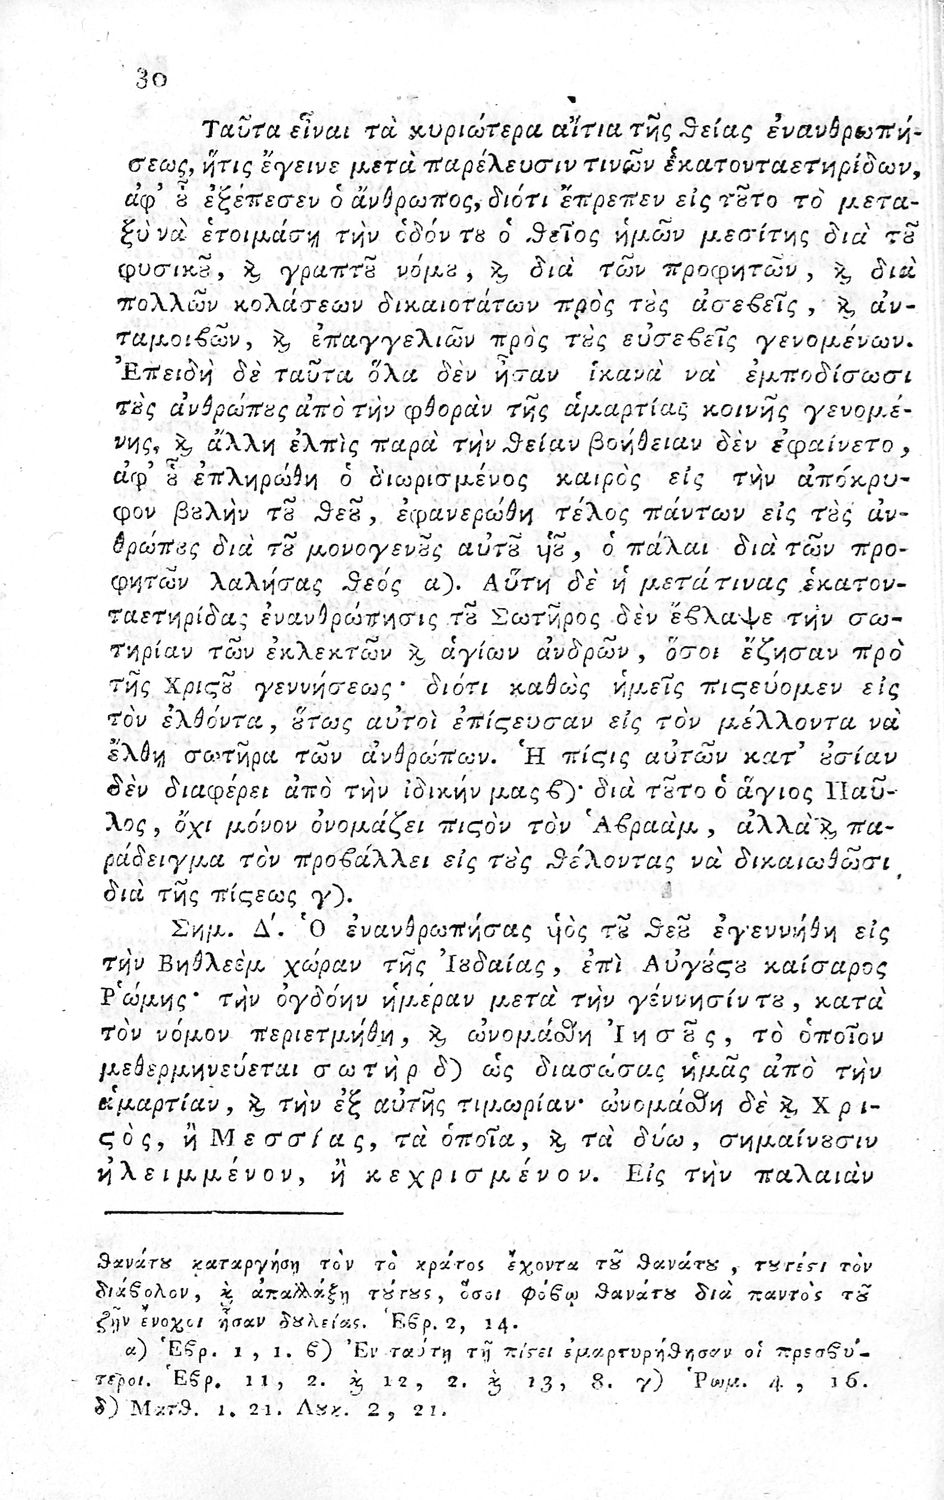 30
Ταῦτα εἶναι τὰ κυριώτερα αἴτια τῆς θείας ἐνανθρωπή-
σεως, ἥτις ἔγεινε μετὰ παρέλευσιν τινῶν ἑκατονταετηρίδων,
ἀφ’ ȣ̔͂ ἐξέπεσεν ὁ ἄνθρωπος, διότι ἔπρεπεν εἰς τȣ͂το τὸ μετα-
ξὺ νὰ ἑτοιμάσῃ τὴν ὁδόν τȣ ὁ θεῖος ἡμῶν μεσίτης διὰ τȣ͂
φυσικȣ͂, ϗ γραπτȣ͂ νόμȣ, ϗ διὰ τῶν προφητῶν, ϗ διὰ
πολλῶν κολάσεων δικαιοτάτων πρὸς τȣ̀ς ἀσεϐεῖς, ϗ ἀν-
ταμοιϐῶν, ϗ ἐπαγγελιῶν πρὸς τȣ̀ς εὐσεϐεῖς γενομένων.
Ἐπειδὴ δὲ ταῦτα ὅλα δὲν ἦσαν ἱκανὰ νὰ ἐμποδίσωσι
τȣ̀ς ἀνθρώπȣς ἀπὸ τὴν φθορὰν τῆς ἁμαρτίας κοινῆς γενομέ-
νης, ϗ ἄλλη ἐλπὶς παρὰ τὴν θείαν βοήθειαν δὲν ἐφαίνετο,
ἀφ’ ȣ̔͂ ἐπληρώθη ὁ διωρισμένος καιρὸς εἰς τὴν ἀπόκρυ-
φον βȣλὴν τȣ͂ θεȣ͂, ἐφανερώθη τέλος πάντων εἰς τȣ̀ς ἀν-
θρώπȣς διὰ τȣ͂ μονογενȣ͂ς αὐτȣ͂ ὑιȣ͂, ὁ πάλαι διὰ τῶν προ-
φητῶν λαλήσας θεός α). Αὕτη δὲ ἡ μετά τινας ἑκατον-
ταετηρίδας ἐνανθρώπησις τȣ͂ Σωτῆρος δὲν ἔϐλαψε τὴν σω-
τηρίαν τῶν ἐκλεκτῶν ϗ ἁγίων ἀνδρῶν, ὅσοι ἔζησαν πρὸ
τῆς Χριϛȣ͂ γεννήσεως· διότι καθὼς ἡμεῖς πιϛεύομεν εἰς
τὸν ἐλθόντα, ȣ̔́τως αὐτοὶ ἐπίϛευσαν εἰς τὸν μέλλοντα νὰ
ἔλθῃ σωτῆρα τῶν ἀνθρώπων. Ἡ πίϛις αὐτῶν κατ’ ȣ̓σίαν
δὲν διαφέρει ἀπὸ τὴν ἰδικήν μας ϐ)· διὰ τȣ͂το ὁ ἅγιος Παῦ-
λος, ὄχι μόνον ὀνομάζει πιϛὸν τὸν Ἁϐραὰμ, ἀλλὰ ϗ πα-
ράδειγμα τὸν προϐάλλει εἰς τȣ̀ς θέλοντας νὰ δικαιωθῶσι
διὰ τῆς πίϛεως γ).
Σημ. Δ´. Ὁ ἐνανθρωπήσας ὑιὸς τȣ͂ θεȣ͂ ἐγεννήθη εἰς
τὴν Βηθλεὲμ χώραν τῆς Ἰȣδαίας, ἐπὶ Αὐγȣ́ϛȣ καίσαρος
Ῥώμης· τὴν ὀγδόην ἡμέραν μετὰ τὴν γέννησίν τȣ, κατὰ
τὸν νόμον περιετμήθη, ϗ ὠνομάσθη Ἰησȣ͂ς, τὸ ὁποῖον
μεθερμηνεύεται σωτὴρ δ) ὡς διασώσας ἡμᾶς ἀπὸ τὴν
ἁμαρτίαν, ϗ τὴν ἐξ αὐτῆς τιμωρίαν· ὠνομάσθη δὲ ϗ Χρι-
ϛὸς, ἢ Μεσσίας, τὰ ὁποῖα, ϗ τὰ δύω, σημαίνȣσιν
ἠλειμμένον, ἢ κεχρισμένον. Εἰς τὴν παλαιὰν
θανάτȣ καταργήσῃ τὸν τὸ κράτος ἔχοντα τȣ͂ θανάτȣ, τȣτέϛι τὸν
διάϐολον, ϗ ἀπαλλάξῃ τȣ́τȣς, ὅσοι φόϐῳ θανάτȣ διὰ παντὸς τȣ͂
ζῆν ἔνοχοι ἦσαν δȣλείας. Ἑϐρ. 2, 14.
α) Ἑϐρ. 1, 1. ϐ) Ἐν ταύτῃ τῇ πίϛει ἐμαρτυρήθησαν οἱ πρεσϐύ-
τεροι. Ἑϐρ. 11, 2. ϗ 12, 2. ϗ 13, 8. γ) Ῥωμ. 4, 16.
δ) Ματθ. 1. 21. Λȣκ. 2, 21.